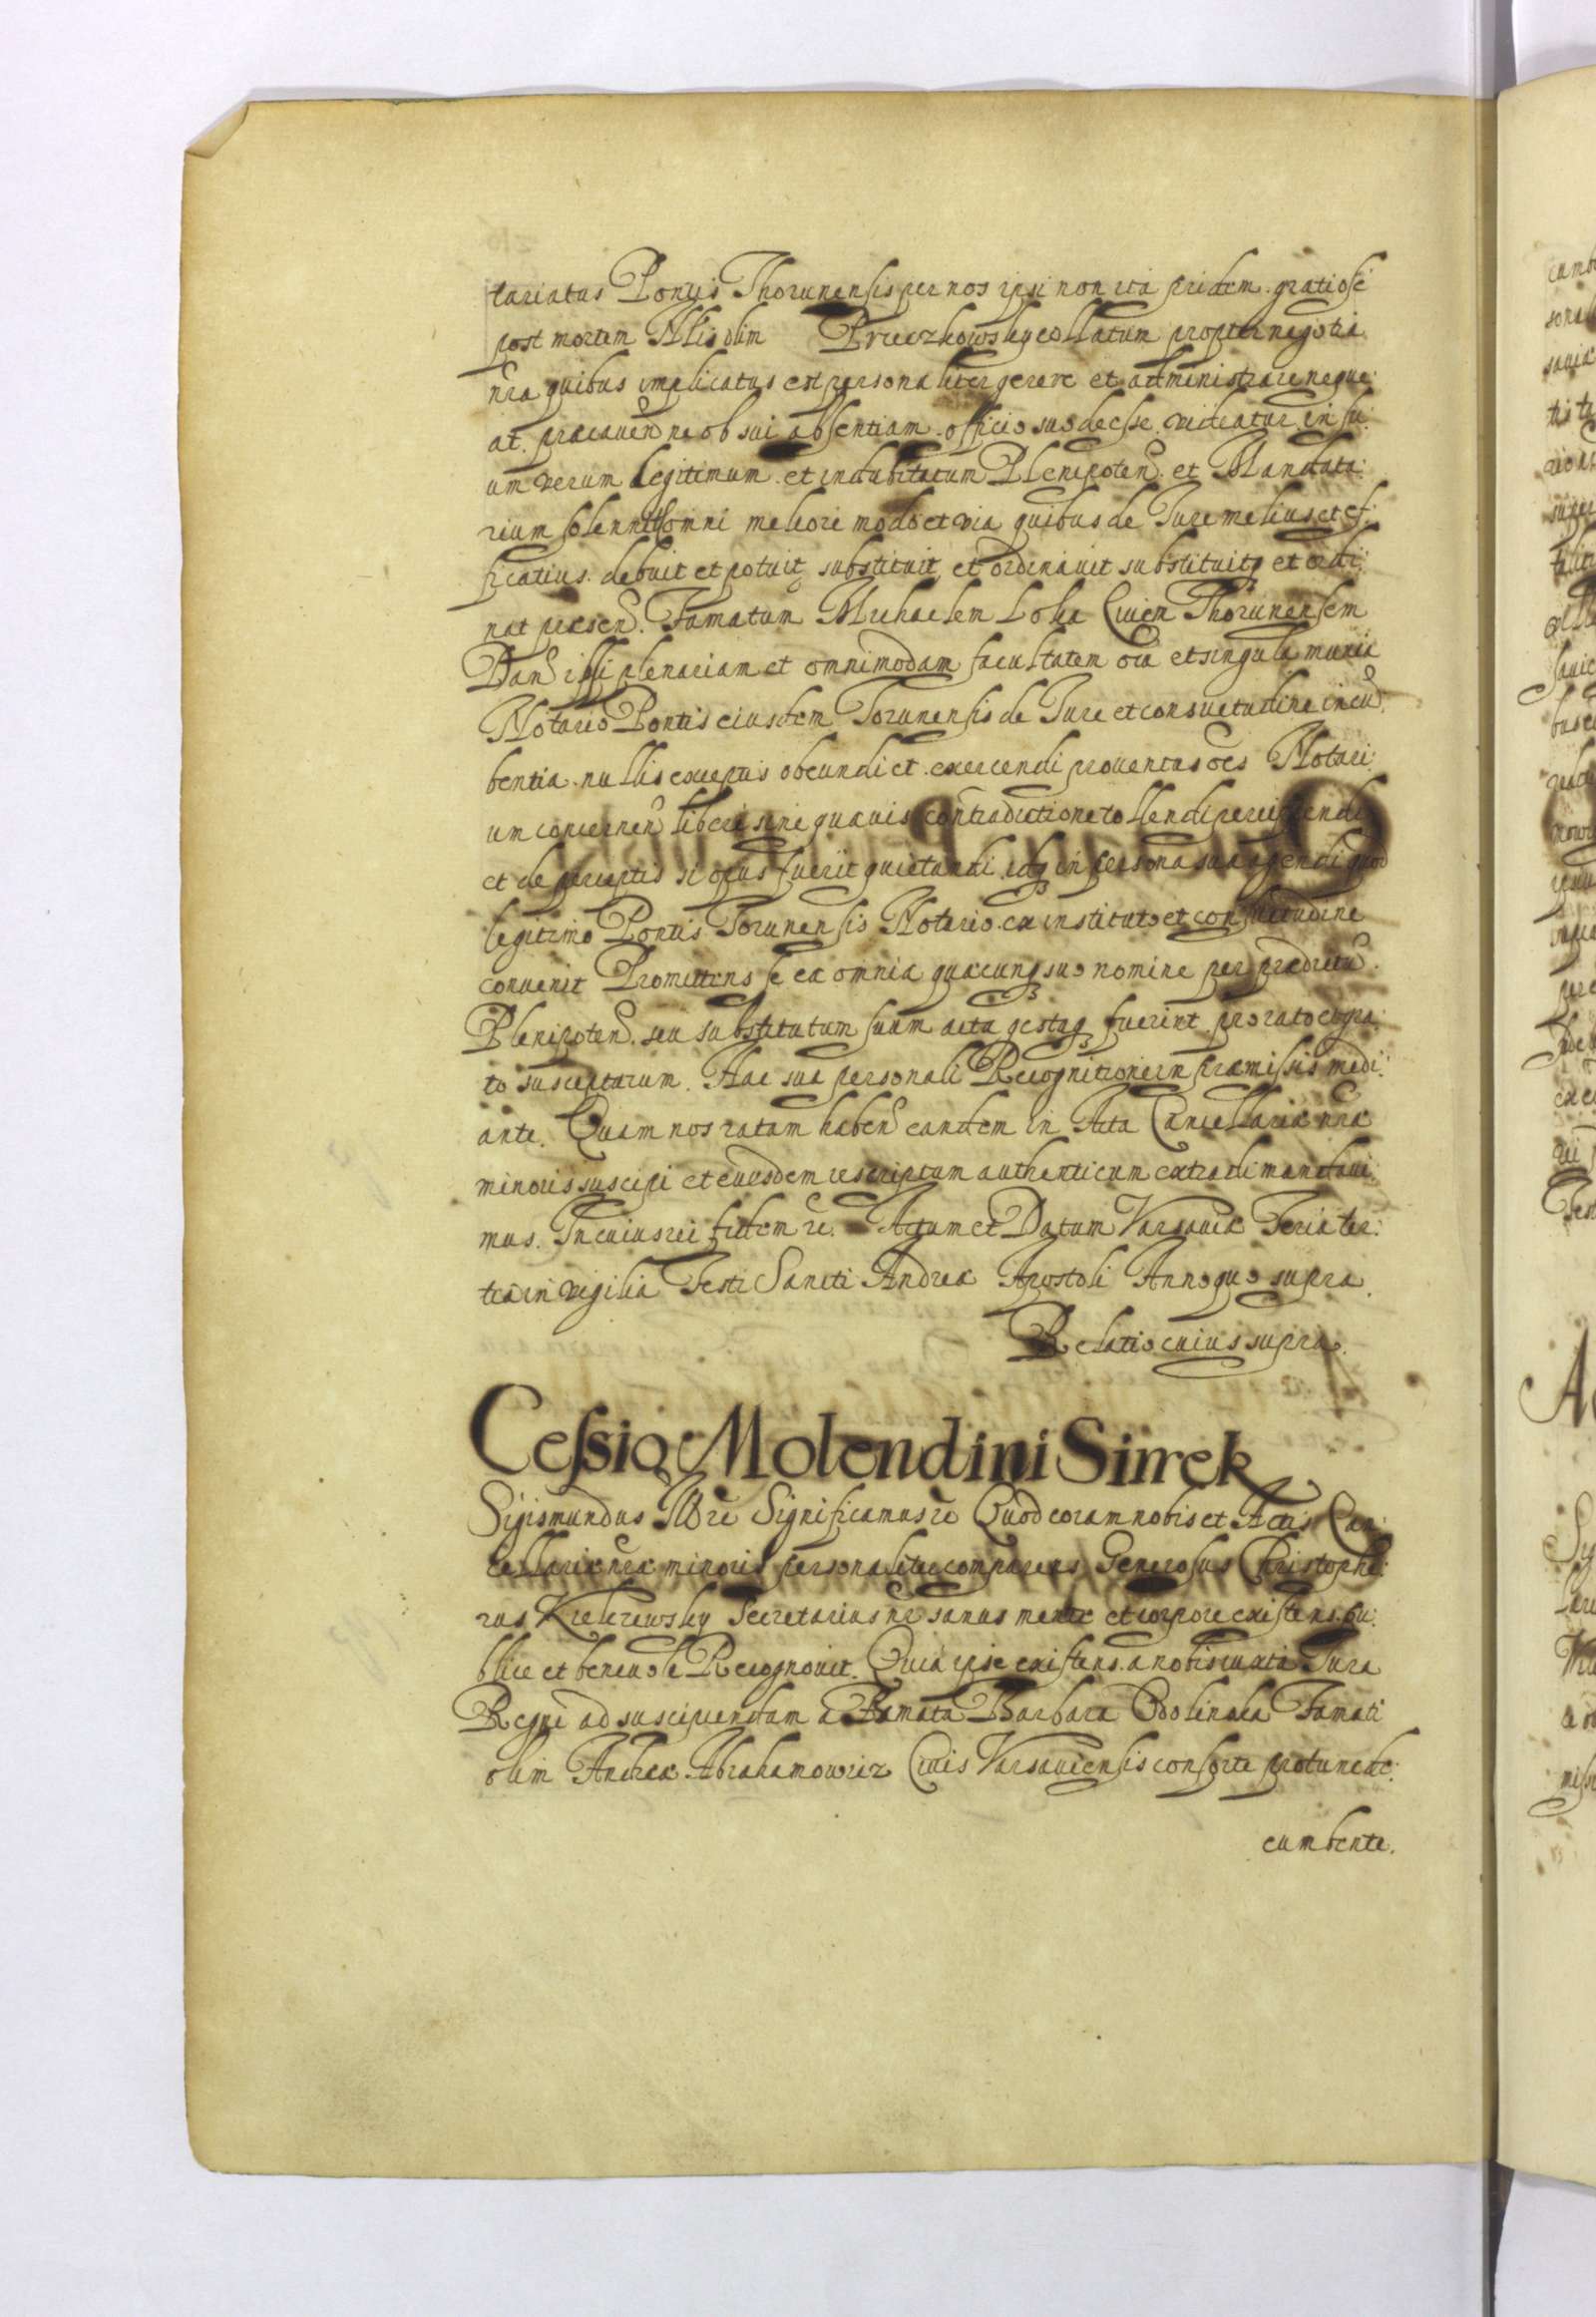 tariatus Pontis Thorunensis per nos ipsi non ita pridem gratiose
post mortem Nobilis olim Prieczkowsky collatum propter negotia
nra quibus implicatus est personaliter gerere et administrare neque:
at. praecaven ne ob sui absentiam officio suo deesse videatur in su:
um verum legitimum et indubitatum Plenipoten. et Mandata:
rium solenni omni meliori modo et via quibus de Jure melius et ef:
ficatius debuit et potuit substituit et ordinavit substituitq et ordi:
nat praesen. Famatum Michaelem Loka Civem Thorunensem
Dan ipsi plenariam et omnimodam facultatem oia et singula munia
Notario Pontis eiusdem Torunensis de Jure et consuetudine incu:
bentia nullis exceptis obeundi et exercendi proventus oes Notari:
um concernen libere sine quavis contradictione tollendi percipiendi
et de perceptis si opus fuerit quietandi idq in persona sua agendi quod
legitimo Pontis Torunensis Notario ex instituto et consuetudine
convenit Promittens se ea omnia quaecunq suo nomine per praedictu
Plenipoten. seu substitutum suum acta gestaq fuerint pro rato et gra:
to suscepturum. Hac sua personali Recognitione in praemissis medi:
ante. Quam nos ratam haben eandem in Acta Cancellariae nrae
minoris suscipi et eiusdem rescriptum authenticum extradi mandavi:
mus. In cuius rei fidem re. Actum et Datum Varsaviae Feria ter:
tia in vigilia Festi Sancti Andreae Apostoli Anno quo supra.
Relatio cuius supra.
Cessio Molendini Simek
Sigismundus III Dre Significamus re Quod coram nobis et Actis Can:
cellariae nrae minoris personaliter comparens Generosus Christopho:
rus Secretarius nr sanus mente et corpore existens pu:
blice et benevole Recognovit. Quia ipse existens a nobis iuxta Jura
Regni ad suscipiendam a Famata Barbara Famati
olim Andreae Abrahamowicz Civis Varsaviensis consorte pro tunc de:
cumbente.